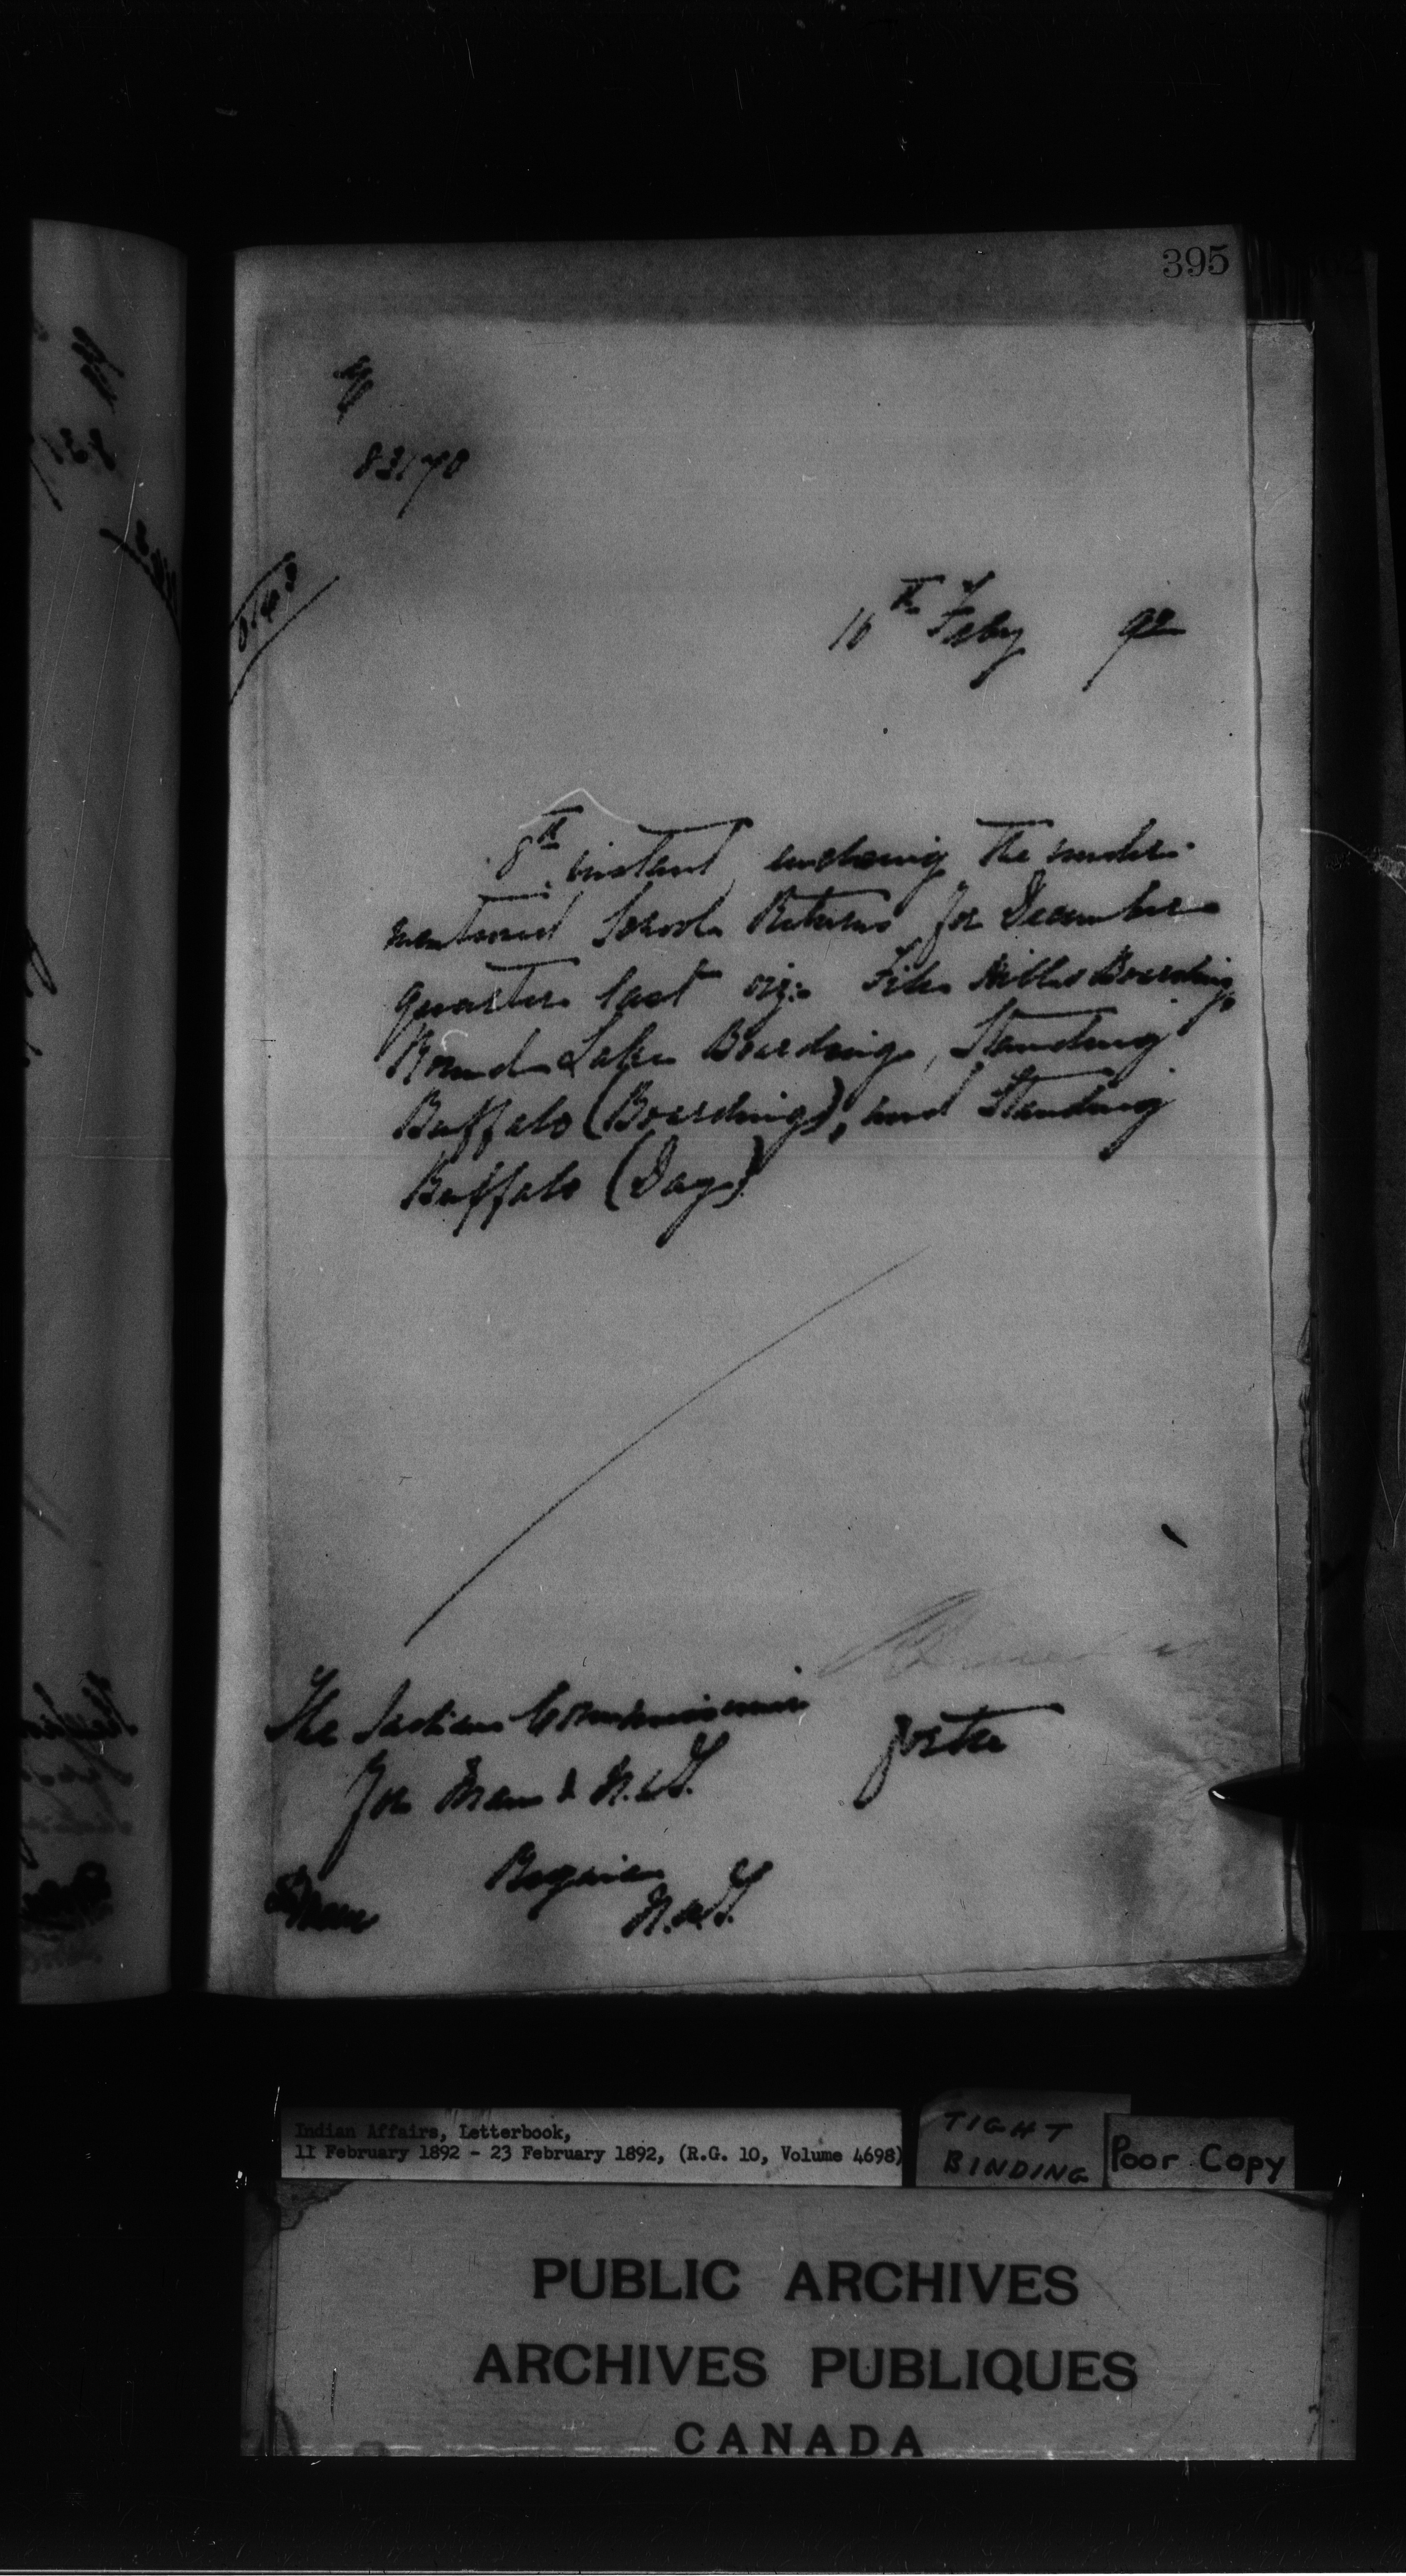 395
83170
16th Feby 92
8th instant enclosing the under-
mentioned School Returns for December
quarter last viz: File Hills Boarding,
Round Lake Boarding, Standing
Buffalo (Boarding), and Standing
Buffalo (Day)
The Indian Commissioner
for Man & N.W.T.
Regina
N.W.T.
Foster
Indian Affairs, Letterbook,
11 February 1892 - 23 February 1892, (R.G. 10, Volume 4698)
TIGHT
BINDING
Poor Copy
PUBLIC ARCHIVES
ARCHIVES PUBLIQUES
CANADA